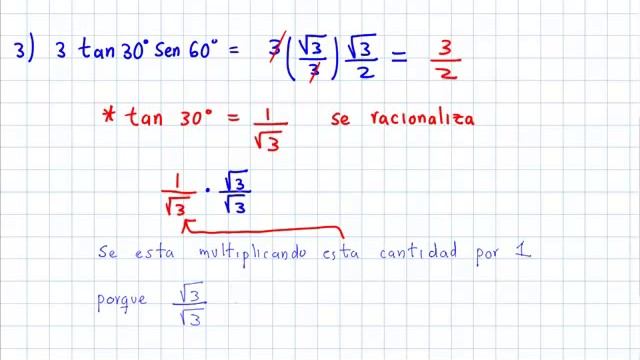 3) 3 tan 30° Sen 60° = 3(√3/3) √3/2 = 3/2
* tan 30° = 1/√3 se racionaliza
1/√3 · √3/√3
Se esta multiplicando esta cantidad por 1
porque √3/√3